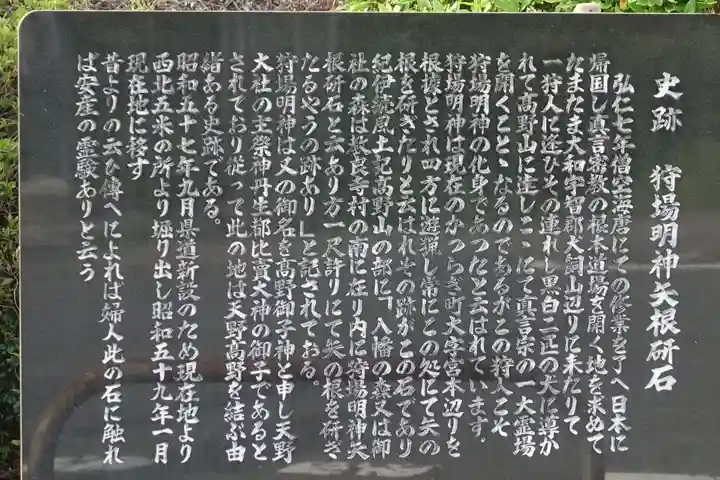 史跡　狩場明神矢根研石
弘仁七年僧空海唐にての修業を了へ日本に
帰国し真言密教の根本道場を開く地を求めて
たまたま大和宇智郡犬飼山辺りに来たりて
一狩人に逢ひその連れし黒白二匹の犬に導か
れて高野山に達しこゝにて真言宗の一大霊場
を開くことゝなるのであるがこの狩人こそ
狩場明神の化身であつたと云はれています。
狩場明神は現在のかつらぎ町大字宮本辺りを
根據とされ四方に遊猟し常にこの処にて矢の
根を研ぎたりと云はれその跡がこの石であり
紀伊続風土記高野山の部に「八幡の森又は御
社の森は教良寺村の南に在り内に狩場明神矢
根研石と云あり方一尺許りにて矢の根を研ぎ
たるやうの跡あり」と記されておる。
狩場明神は又の御名を高野御子神と申し天野
大社の主祭神丹生都比賣大神の御子であると
されており従って此の地は天野高野を結ぶ由
緒ある史跡である。
昭和五十七年九月県道新設のため現在地より
西北五米の所より堀り出し昭和五十九年一月
現在地に移す
昔よりの云ひ傳へによれば婦人此の石に触れ
ば安産の霊験ありと云う